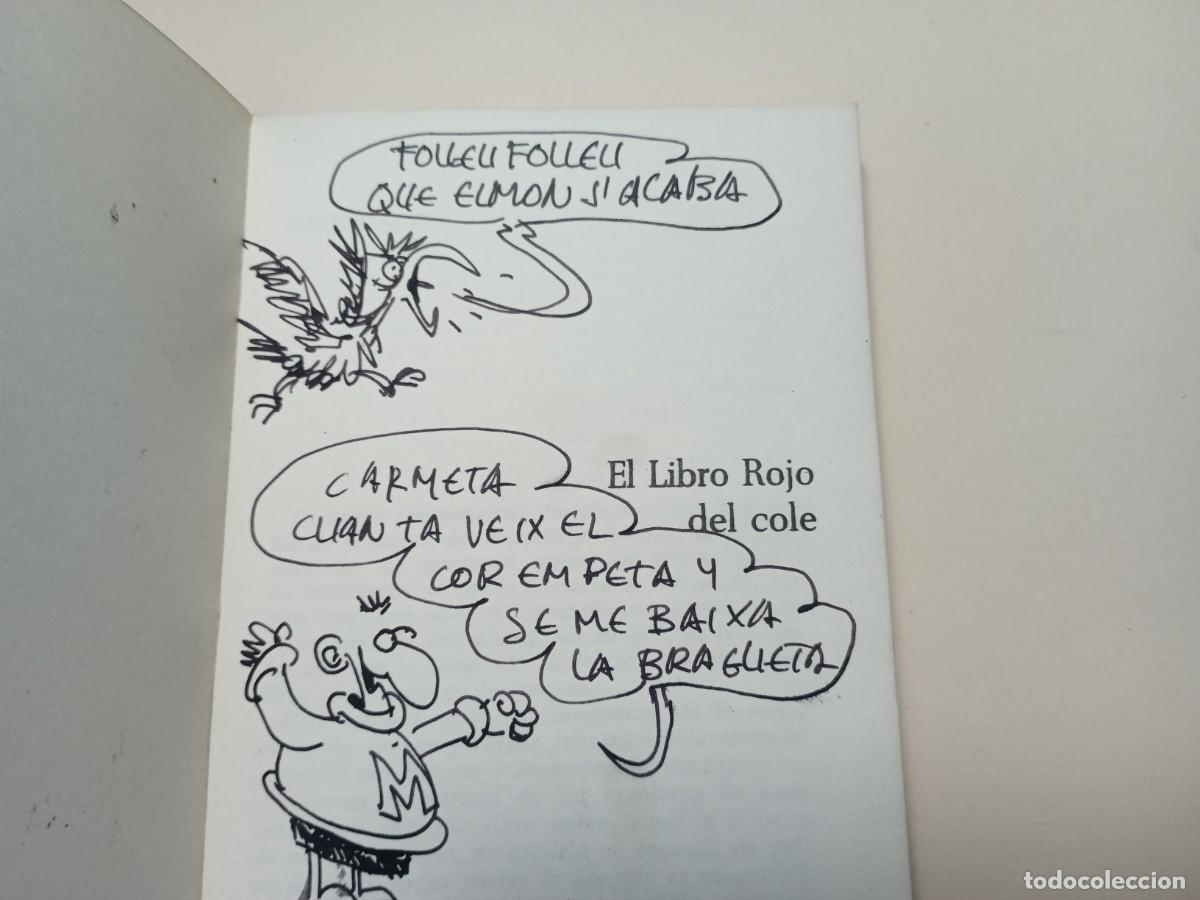 FOLLEU FOLLEU
QUE EL MON S'ACABA
CARMETA
CUAN TA VEIX EL
COR EM PETA Y
SE ME BAIXA
LA BRAGUETA
El Libro Rojo
del cole
M
todocoleccion